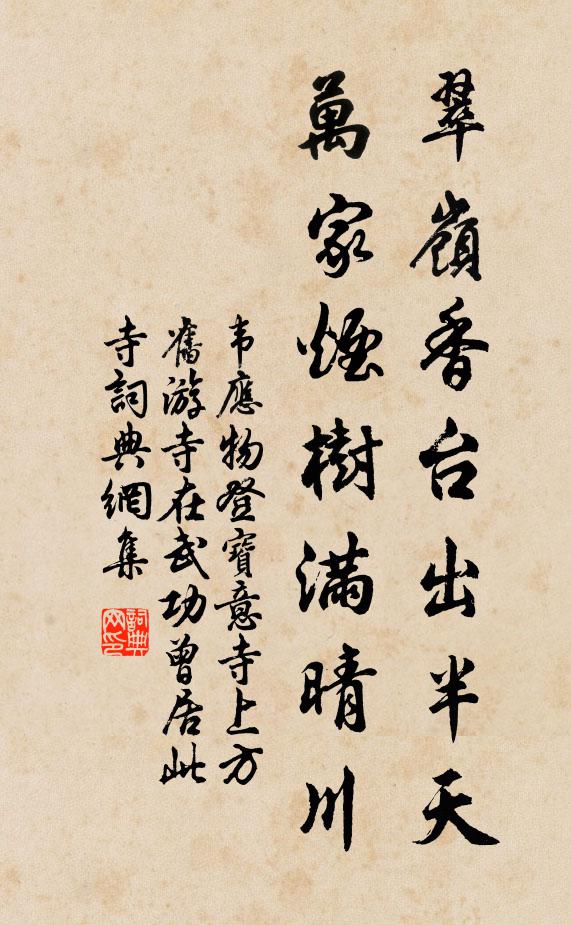 翠嶺香台出半天
萬家煙樹滿晴川
韦應物登寶意寺上方
舊游寺在武功曾居此
寺詞典網集
詞典
网印